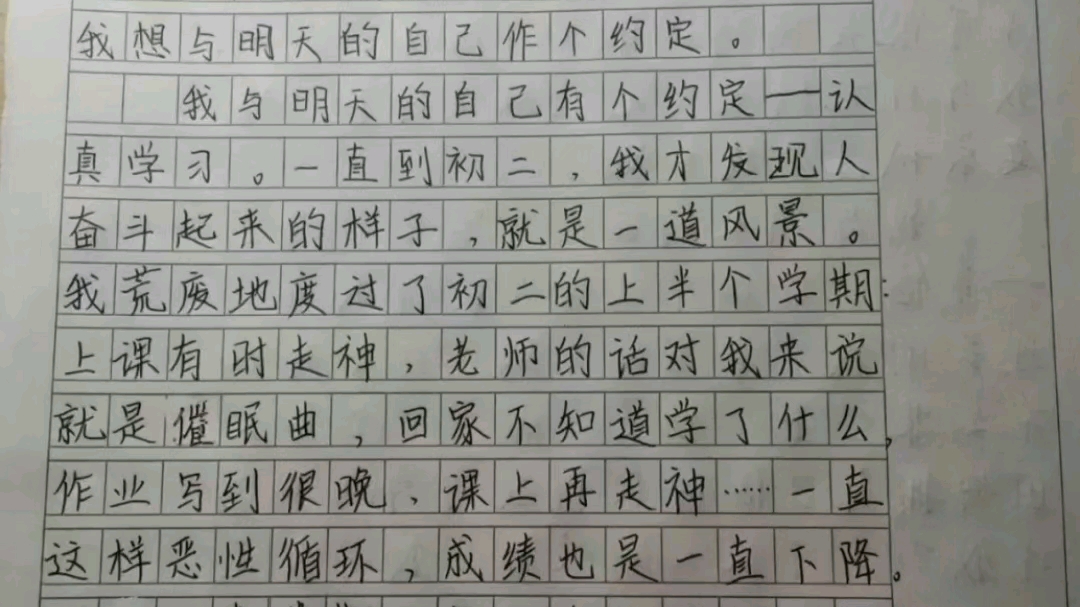 我想与明天的自己作个约定。
我与明天的自己有个约定——认
真学习。一直到初二，我才发现人
奋斗起来的样子，就是一道风景。
我荒废地度过了初二的上半个学期：
上课有时走神，老师的话对我来说
就是催眠曲，回家不知道学了什么，
作业写到很晚，课上再走神……一直
这样恶性循环，成绩也是一直下降。